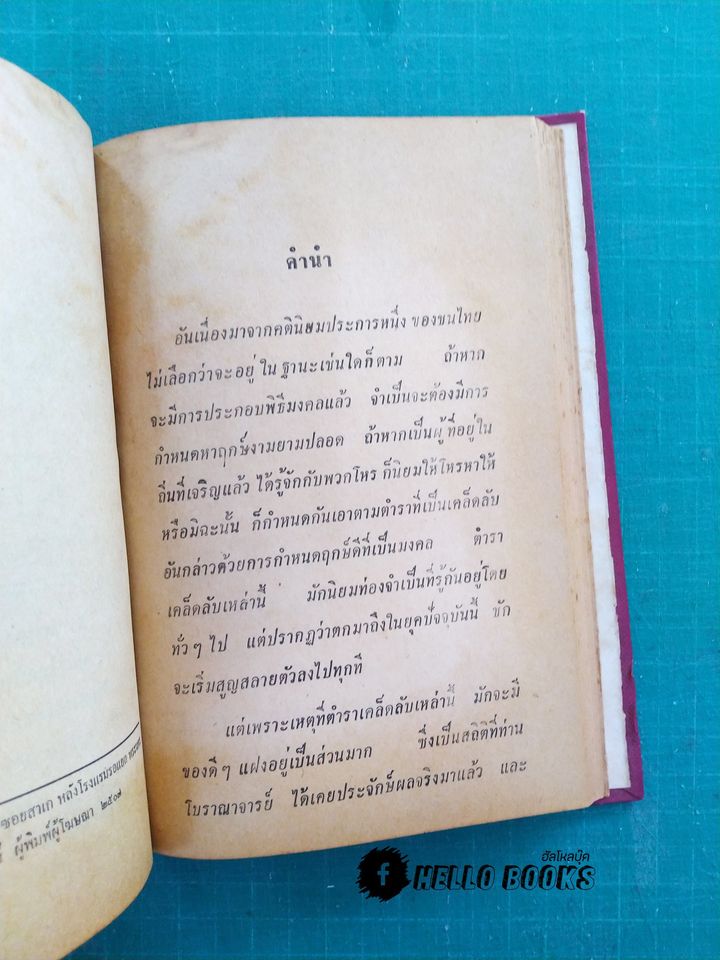 ซอยสาเก หลังโรงแรมรอแยล
ผู้พิมพ์ผู้โฆษณา ๒๕๐๗
คำนำ
อันเนื่องมาจากคตินิยมประการหนึ่ง ของชนไทย
ไม่เลือกว่าจะอยู่ ใน ฐานะเช่นใดก็ตาม ถ้าหาก
จะมีการประกอบพิธีมงคลแล้ว จำเป็นจะต้องมีการ
กำหนดหาฤกษ์งามยามปลอด ถ้าหากเป็นผู้ที่อยู่ใน
ถิ่นที่เจริญแล้ว ได้รู้จักกับพวกโหร ก็นิยมให้โหรหาให้
หรือมิฉะนั้น ก็กำหนดกันเอาตามตำราที่เป็นเคล็ดลับ
อันกล่าวด้วยการกำหนดฤกษ์ดีที่เป็นมงคล ตำรา
เคล็ดลับเหล่านี้ มักนิยมท่องจำเป็นที่รู้กันอยู่โดย
ทั่วๆ ไป แต่ปรากฏว่าตกมาถึงในยุคปัจจุบันนี้ ชัก
จะเริ่มสูญสลายตัวลงไปทุกที
แต่เพราะเหตุที่ตำราเคล็ดลับเหล่านี้ มักจะมี
ของดีๆ แฝงอยู่เป็นส่วนมาก ซึ่งเป็นสถิติที่ท่าน
โบราณาจารย์ ได้เคยประจักษ์ผลจริงมาแล้ว และ
ฮัลโหลบุ๊ค
f HELLO BOOKS